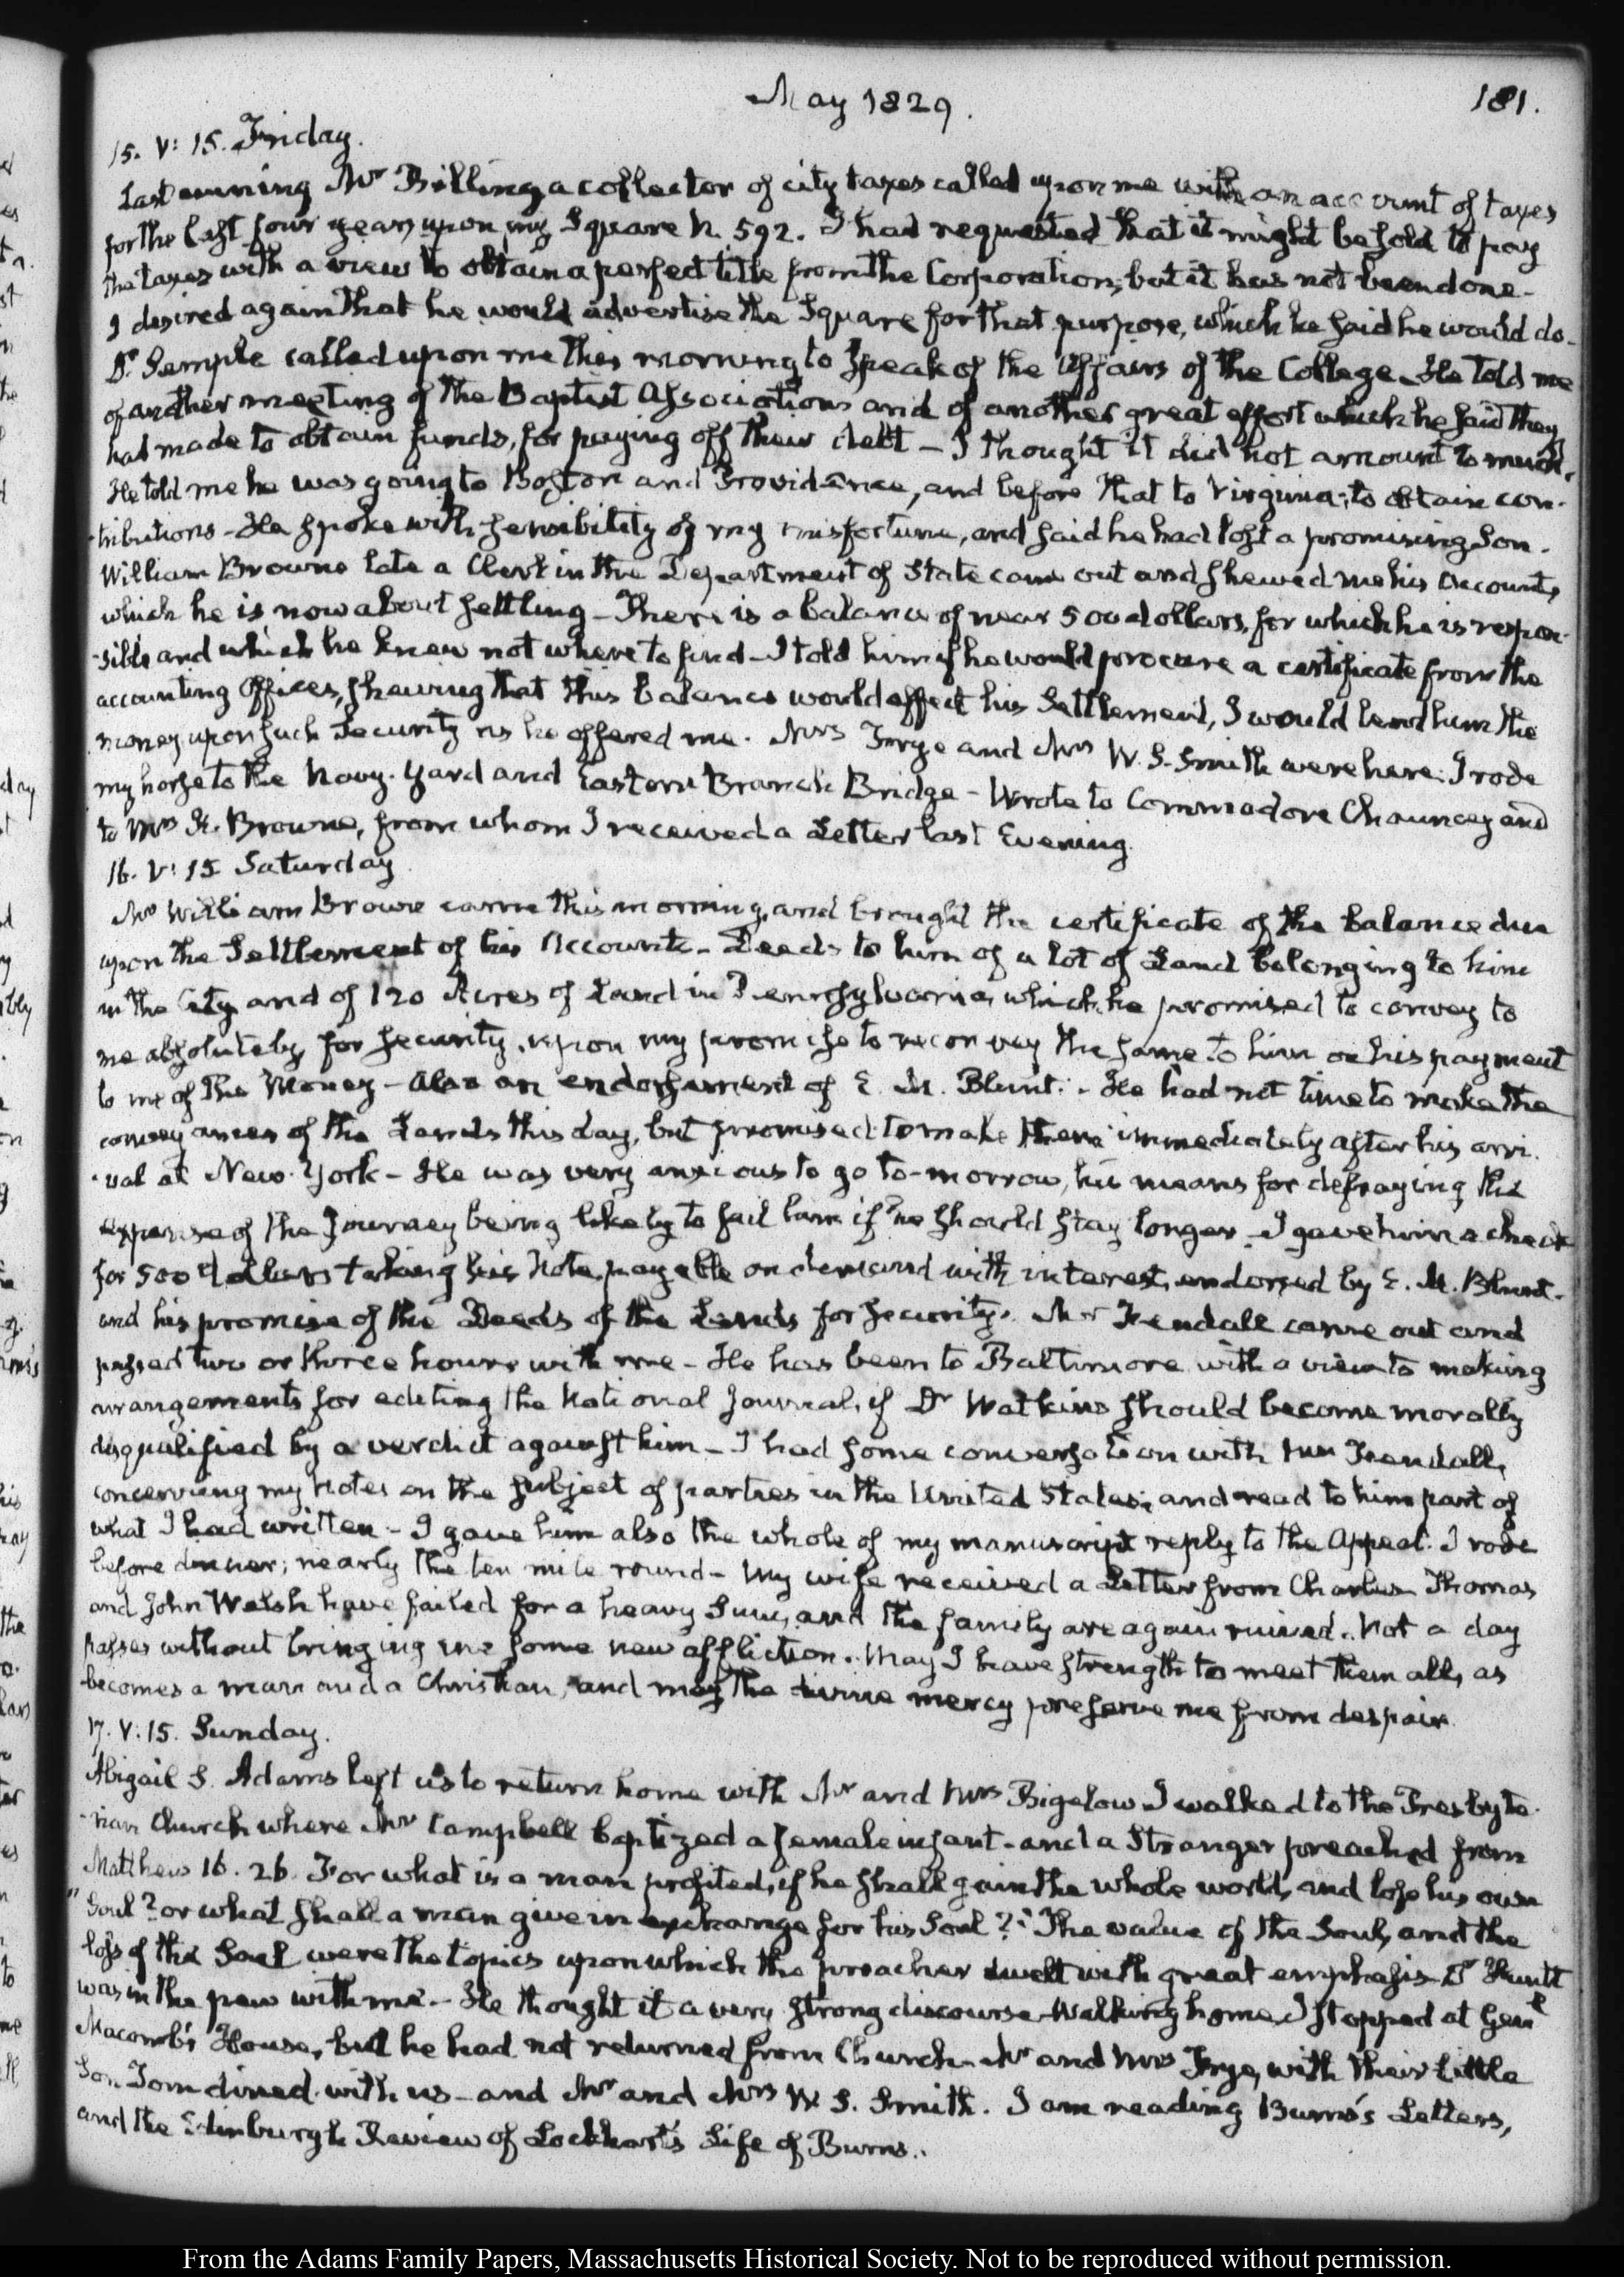 May 1829.
181.
15. V: 15. Friday.
Last evening Mr Billing a collector of city taxes called upon me with an account of taxes
for the last four years upon my Square N. 592. I had requested that it might be sold to pay
the taxes with a view to obtain a perfect title from the Corporation; but it has not been done.
I desired again that he would advertise the Square for that purpose, which he said he would do.
Dr. Semple called upon me this morning to speak of the affairs of the College. He told me
of another meeting of the Baptist Associations and of another great effort which he said they
had made to obtain funds, for paying off their debt — I thought it did not amount to much.
He told me he was going to Boston and Providence, and before that to Virginia; to obtain con-
-tributions — He spoke with sensibility of my misfortune, and said he had lost a promising Son.
William Browne late a Clerk in the Department of State came out and shewed me his accounts,
which he is now about settling — There is a balance of near 500 dollars, for which he is respon-
-sible and which he knew not where to find — I told him if he would procure a certificate from the
accounting Offices, shewing that this balance would effect his Settlement, I would lend him the
money upon such Security as he offered me. Mrs Frye and Mrs W. S. Smith were here. I rode
my horse to the Navy-Yard and Eastern Branch Bridge — Wrote to Commodore Chauncey and
to Mrs H. Browne, from whom I received a Letter last Evening.
16. V: 15 Saturday
Mr William Browne came this morning, and brought the certificate of the balance due
upon the Settlement of his Accounts — Deeds to him of a lot of Land belonging to him
in the City and of 120 Acres of Land in Pennsylvania, which he promised to convey to
me absolutely for security, upon my promise to reconvey the same to him on his payment
to me of the Money — also an endorsement of E. M. Blunt. — He had not time to make the
conveyances of the Lands this day, but promised to make them immediately after his arri-
-val at New-York — He was very anxious to go to-morrow, his means for defraying the
expense of the Journey being likely to fail him if he should stay longer — I gave him a check
for 500 dollars taking his Note, payable on demand with interest, endorsed by E. M. Blunt.
and his promise of the Deeds of the Lands for security. Mr Kendall came out and
passed two or three hours with me — He has been to Baltimore with a view to making
arrangements for editing the National Journal, if Dr Watkins should become morally
disqualified by a verdict against him — I had some conversation with Mr Kendall,
concerning my Notes on the subject of parties in the United States; and read to him part of
what I had written — I gave him also the whole of my manuscript reply to the Appeal. I rode
before dinner; nearly the ten mile round — My wife received a Letter from Charles. Thomas
and John Welsh have failed for a heavy Sum, and the family are again ruined. Not a day
passes without bringing me some new affliction. May I have strength to meet them all, as
becomes a man and a Christian, and may the divine mercy preserve me from despair.
17. V: 15. Sunday.
Abigail S. Adams left us to return home with Mr and Mrs Bigelow I walked to the Presbyte-
-rian Church where Mr Campbell baptized a female infant — and a Stranger preached from
Matthew 16. 26. For what is a man profited, if he shall gain the whole world, and lose his own
"Soul? or what shall a man give in exchange for his Soul?" The value of the Soul, and the
loss of the Soul were the topics upon which the preacher dwelt with great emphasis. Dr Huntt
was in the pew with me. — He thought it a very strong discourse. Walking home I stopped at Genl
Macomb's House, but he had not returned from Church. Mr and Mrs Frye, with their little
Son Tom dined with us — and Mr and Mrs W. S. Smith. I am reading Burns's Letters,
and the Edinburgh Review of Lockhart's Life of Burns.
From the Adams Family Papers, Massachusetts Historical Society. Not to be reproduced without permission.